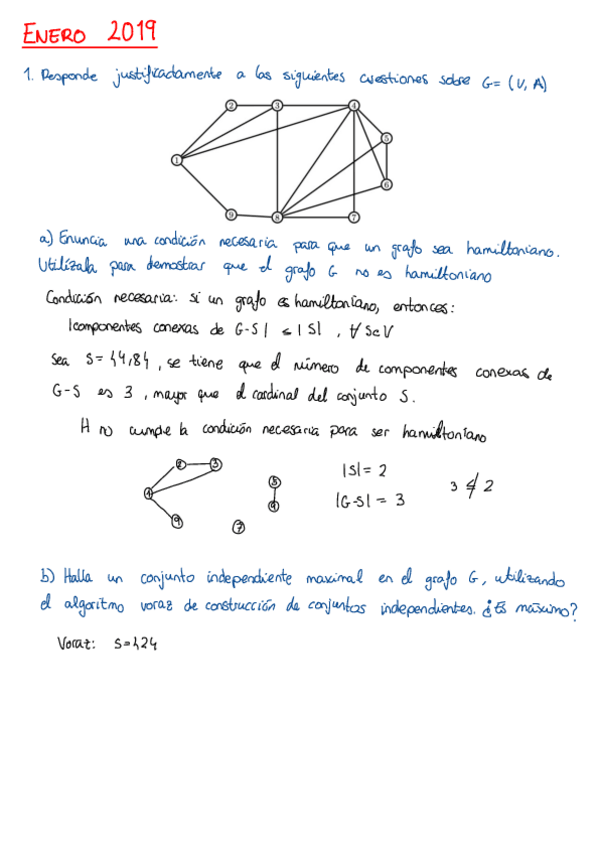 ENERO 2019
1. Responde justificadamente a las siguientes cuestiones sobre G = (V, A)
2 3 4
5
1
6
9 8 7
a) Enuncia una condición necesaria para que un grafo sea hamiltoniano.
Utilízala para demostrar que el grafo G no es hamiltoniano
Condición necesaria: si un grafo es hamiltoniano, entonces:
|componentes conexas de G-S| ≤ |S| , ∀ S⊂V
sea S = {4,8} , se tiene que el número de componentes conexas de
G-S es 3 , mayor que el cardinal del conjunto S.
H no cumple la condición necesaria para ser hamiltoniano
2 3
1 5 |S| = 2
9 7 |G-S| = 3 3 ≰ 2
b) Halla un conjunto independiente maximal en el grafo G, utilizando
el algoritmo voraz de construcción de conjuntos independientes. ¿Es máximo?
Voraz: S={2}